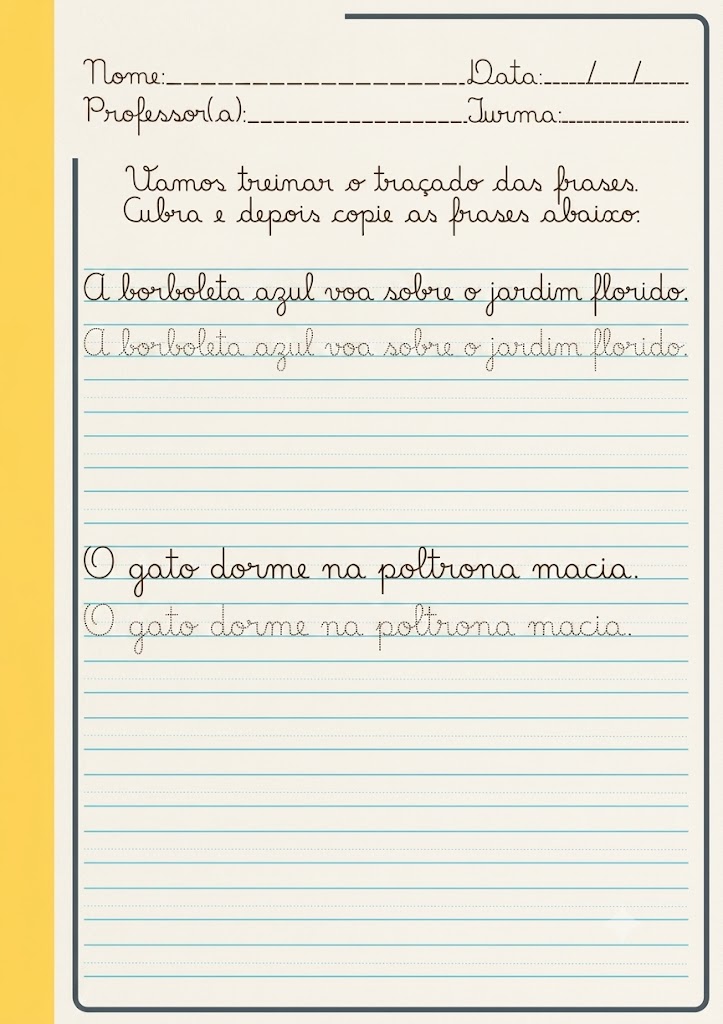 Nome:____________________Data:____/___/____
Professor(a):________________Turma:____________
Vamos treinar o traçado das frases.
Cubra e depois copie as frases abaixo:
A borboleta azul voa sobre o jardim florido.
A borboleta azul voa sobre o jardim florido.
O gato dorme na poltrona macia.
O gato dorme na poltrona macia.